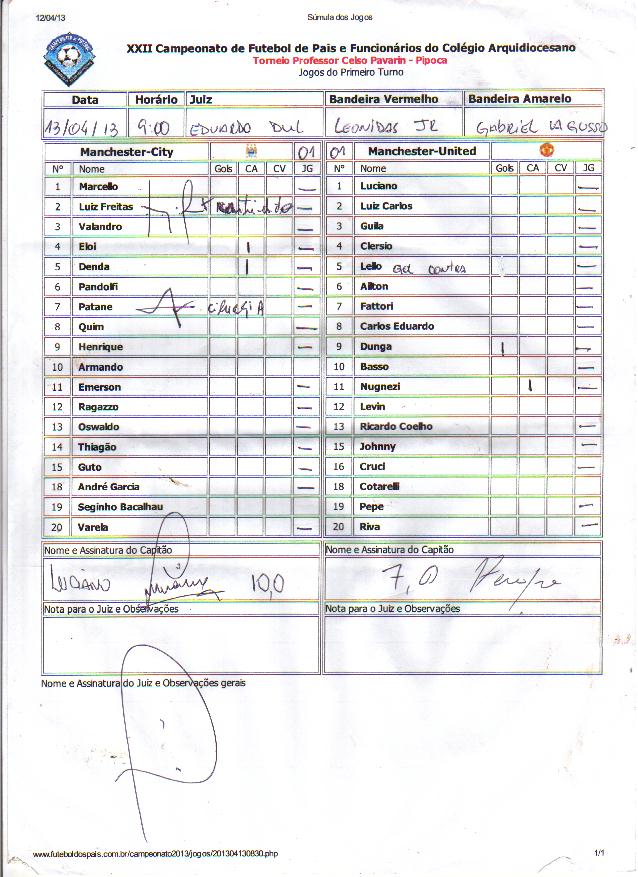 12/04/13 Súmula dos Jogos
XXII Campeonato de Futebol de Pais e Funcionários do Colégio Arquidiocesano
Torneio Professor Celso Pavarin - Pipoca
Jogos do Primeiro Turno
Data Horário Juiz Bandeira Vermelho Bandeira Amarelo
13/04/13 9:00 EDUARDO DUL LEONIDAS JR GABRIEL LAGUSSO
Manchester-City 01 01 Manchester-United
Nº Nome Gols CA CV JG Nº Nome Gols CA CV JG
1 Marcello — 1 Luciano —
2 Luiz Freitas — 2 Luiz Carlos —
3 Valandro — 3 Guila —
4 Eloi I — 4 Clersio —
5 Denda I — 5 Lello Gol contra
6 Pandolfi — 6 Ailton —
7 Patane CIRURGIA — 7 Fattori —
8 Quim — 8 Carlos Eduardo —
9 Henrique — 9 Dunga I —
10 Armando 10 Basso —
11 Emerson — 11 Nugnezi I —
12 Ragazzo — 12 Levin —
13 Oswaldo — 13 Ricardo Coelho —
14 Thiagão — 15 Johnny —
15 Guto — 16 Cruci —
18 André Garcia — 18 Cotarelli
19 Seginho Bacalhau 19 Pepe —
20 Varela — 20 Riva —
Nome e Assinatura do Capitão Nome e Assinatura do Capitão
LUCIANO 10,0 7,0
Nota para o Juiz e Observações Nota para o Juiz e Observações
Nome e Assinatura do Juiz e Observações gerais
www.futeboldospais.com.br/campeonato2013/jogos/201304130830.php 1/1